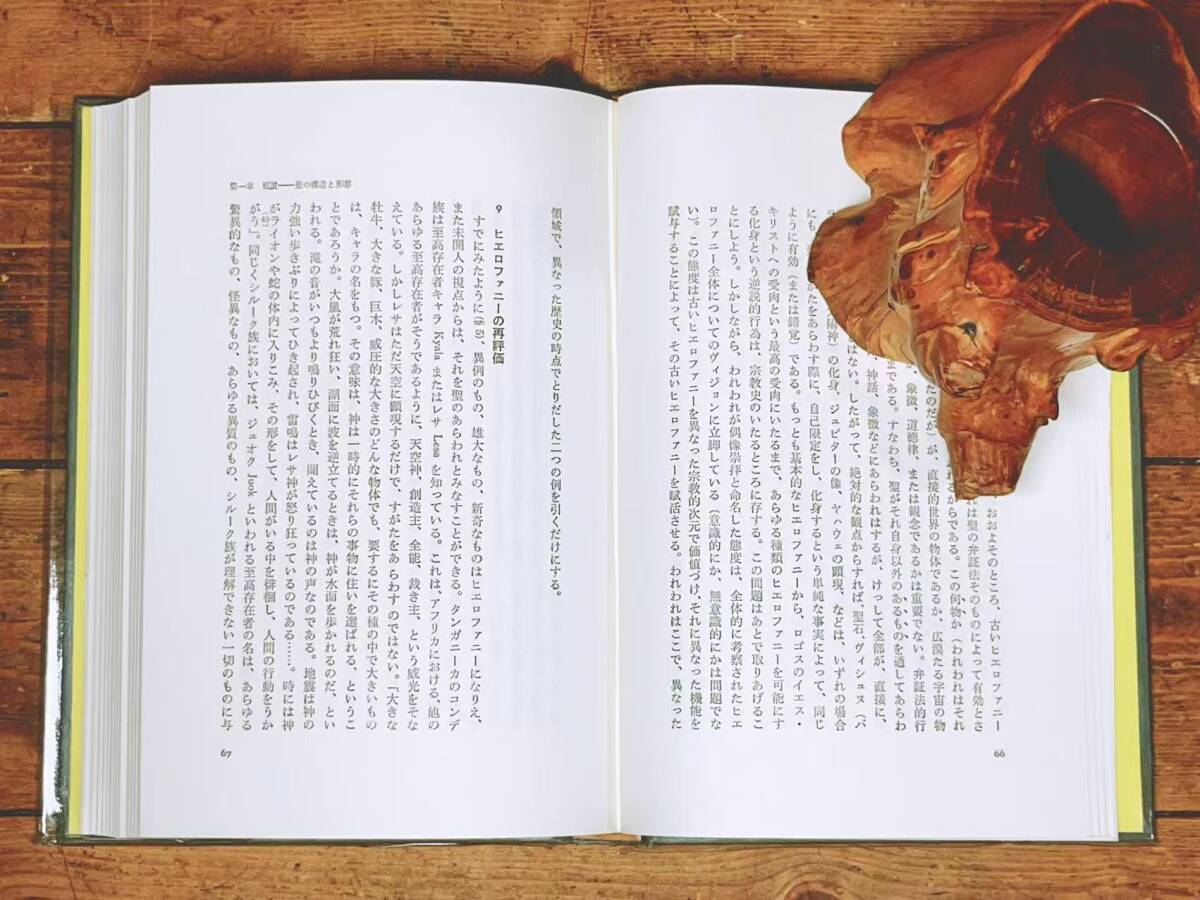 、おおよそのところ、古いヒエロファニー
れは聖の弁証法そのものによって有効とさ
れるからである。この何物か（われわれはそれ
たのだが）が、直接的世界の物体であるか、広漠たる宇宙の物
象徴、道徳律、または観念であるかは重要でない。弁証法的行
まである。すなわち、聖がそれ自身以外のあるものを通してあらわ
、神話、象徴などにあらわれはするが、けっして全部が、直接に、
はない。したがって、絶対的な観点からすれば、聖石、ヴィシュヌ（パ
陽神）の化身、ジュピターの像、ヤハウェの顕現、などは、いずれの場合
にも、 たをあらわす際に、自己限定をし、化身するという単純な事実によって、同じ
ように有効（または錯覚）である。もっとも基本的なヒエロファニーから、ロゴスのイエス・
キリストへの受肉という最高の受肉にいたるまで、あらゆる種類のヒエロファニーを可能にす
る化身という逆説的行為は、宗教史のいたるところに存する。この問題はあとで取りあげるこ
とにしよう。しかしながら、われわれが偶像崇拝と命名した態度は、全体的に考察されたヒエ
ロファニー全体についてのヴィジョンに立脚している（意識的にか、無意識的にかは問題でな
い）。この態度は古いヒエロファニーを異なった宗教的次元で価値づけ、それに異なった機能を
賦与することによって、その古いヒエロファニーを賦活させる。われわれはここで、異なった
66
領域で、異なった歴史の時点でとりだした二つの例を引くだけにする。
9 ヒエロファニーの再評価
すでにみたように（§5）、異例のもの、雄大なもの、新奇なものはヒエロファニーになりえ、
また未開人の視点からは、それを聖のあらわれとみなすことができる。タンガニーカのコンデ
族は至高存在者キャラ Kyala またはレサ Lesa を知っている。これは、アフリカにおける、他の
あらゆる至高存在者がそうであるように、天空神、創造主、全能、裁き主、という威光をそな
えている。しかしレサはただ天空に顕現するだけで、すがたをあらわすのではない。「大きな
牡牛、大きな豚、巨木、威圧的な大きさのどんな物体でも、要するにその種の中で大きいもの
は、キャラの名をもつ。その意味は、神は一時的にそれらの事物に住いを選ばれる、というこ
とであろうか。大風が荒れ狂い、湖面に波を逆立てるときは、神が水面を歩かれるのだ、とい
われる。滝の音がいつもより鳴りひびくとき、聞えているのは神の声なのである。地震は神の
力強い歩きぶりによってひき起され、雷鳴はレサ神が怒り狂っているのである……。時には神
がライオンや蛇の体内に入りこみ、その形をして、人間がいる中を徘徊し、人間の行動をうか
がう」。同じくシルーク族においては、ジュオク Juok といわれる至高存在者の名は、あらゆる
驚異的なもの、怪異なもの、あらゆる異質のもの、シルーク族が理解できない一切のものに与
第一章 概説――聖の構造と形態
67